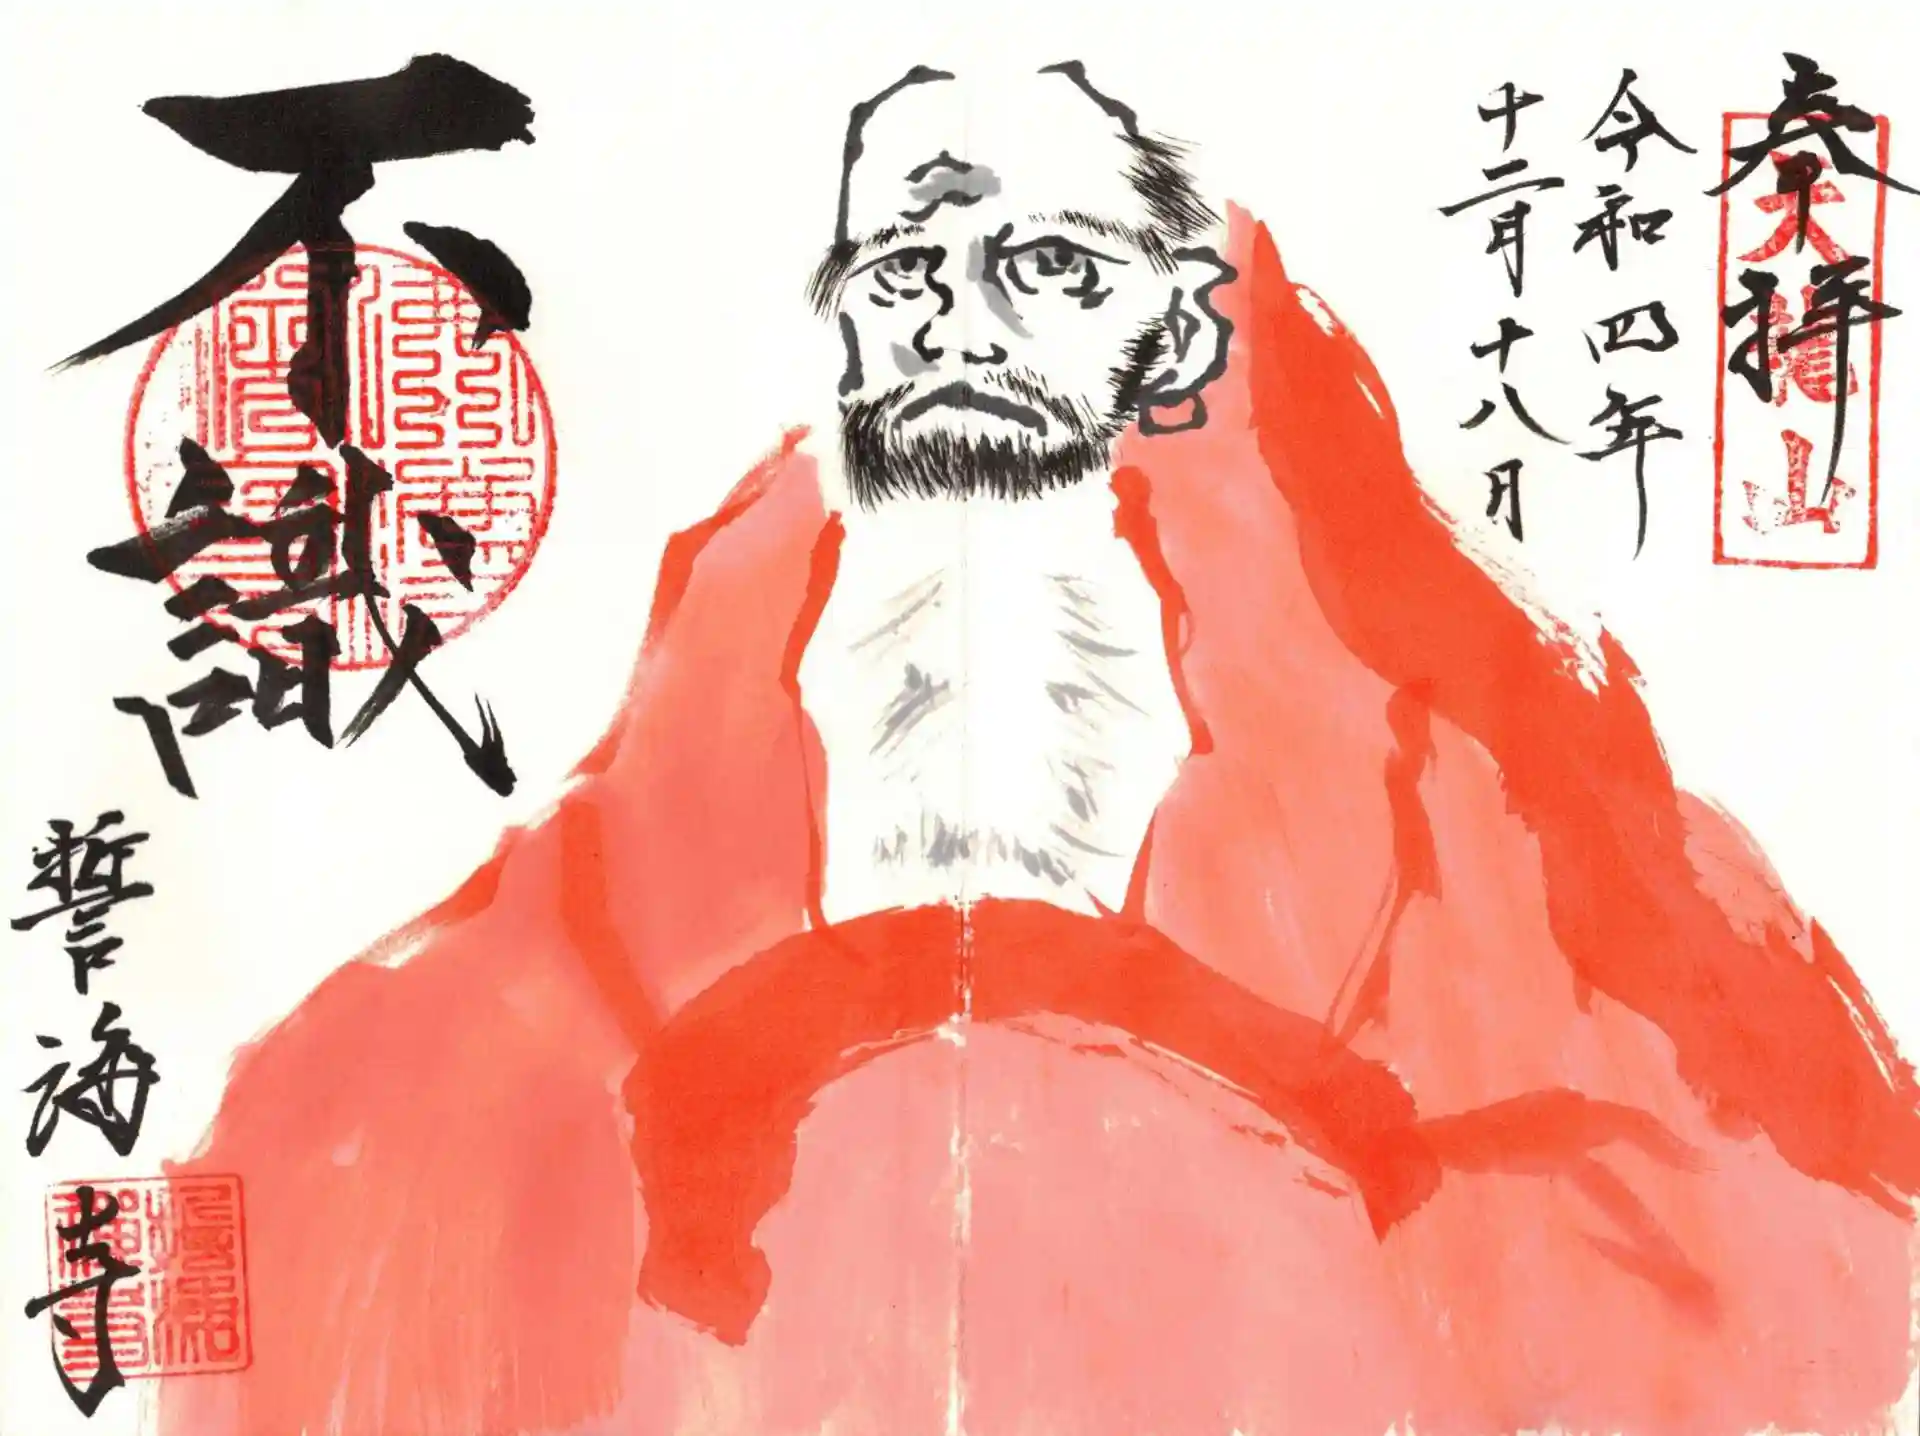 奉拝
令和四年
十二月十八日
不識
誓海寺